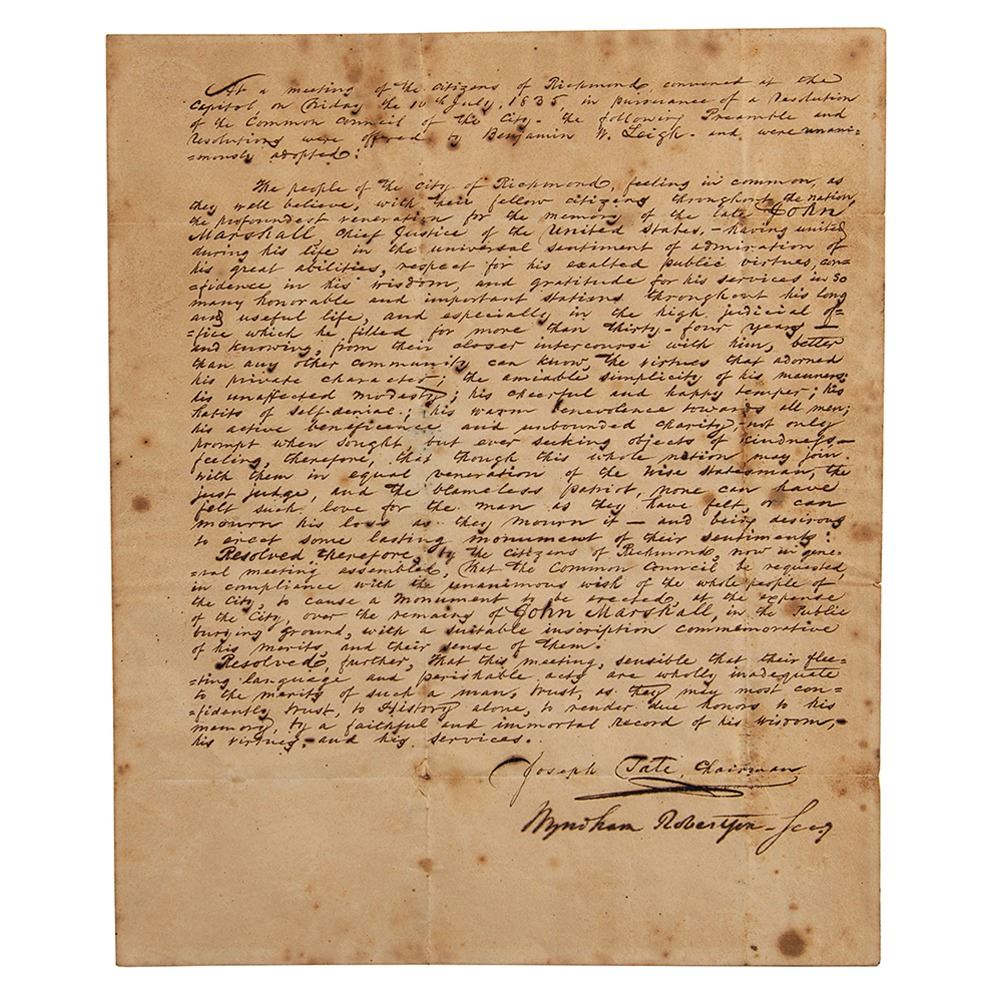 At a meeting of the citizens of Richmond, convened at the
Capitol, on Friday the 10th July, 1835, in pursuance of a Resolution
of the Common Council of the City - the following Preamble and
Resolutions were offered by Benjamin W. Leigh - and were unani-
=mously adopted:
The people of the City of Richmond, feeling in common, as
they well believe, with their fellow citizens throughout the nation,
the profoundest veneration for the memory of the late John
Marshall Chief Justice of the United States, - having united
during his life in the universal sentiment of admiration of
his great abilities, respect for his exalted public virtues, con=
=fidence in his wisdom, and gratitude for his services in so
many honorable and important stations throughout his long
and useful life, and especially in the high judicial of=
=fice which he filled for more than thirty-four years —
and knowing, from their closer intercourse with him, better
than any other community can know, the virtues that adorned
his private character; the amiable simplicity of his manners;
his unaffected modesty; his cheerful and happy temper; his
habits of self-denial; his warm benevolence towards all men;
his active beneficence and unbounded charity, not only
prompt when sought, but ever seeking objects of kindness —
feeling, therefore, that though this whole nation may join
with them in equal veneration of the wise statesman, the
just judge, and the blameless patriot, none can have
felt such love for the man as they have felt, or can
mourn his loss as they mourn it — and being desirous
to erect some lasting monument of their sentiments:
Resolved therefore, by the citizens of Richmond, now in gene=
=ral meeting assembled, That the Common Council be requested,
in compliance with the unanimous wish of the whole people of
the City, to cause a Monument to be erected, at the expense
of the City, over the remains of John Marshall, in the Public
burying ground, with a suitable inscription commemorative
of his merits, and their sense of them.
Resolved, further, That this meeting, sensible that their flee=
=ting language and perishable acts are wholly inadequate
to the merits of such a man, trust, as they may most con=
=fidently trust, to History alone, to render due honors to his
memory, by a faithful and immortal record of his wisdom,
his virtues, and his services.
Joseph Tate, Chairman
Wyndham Robertson - Secy